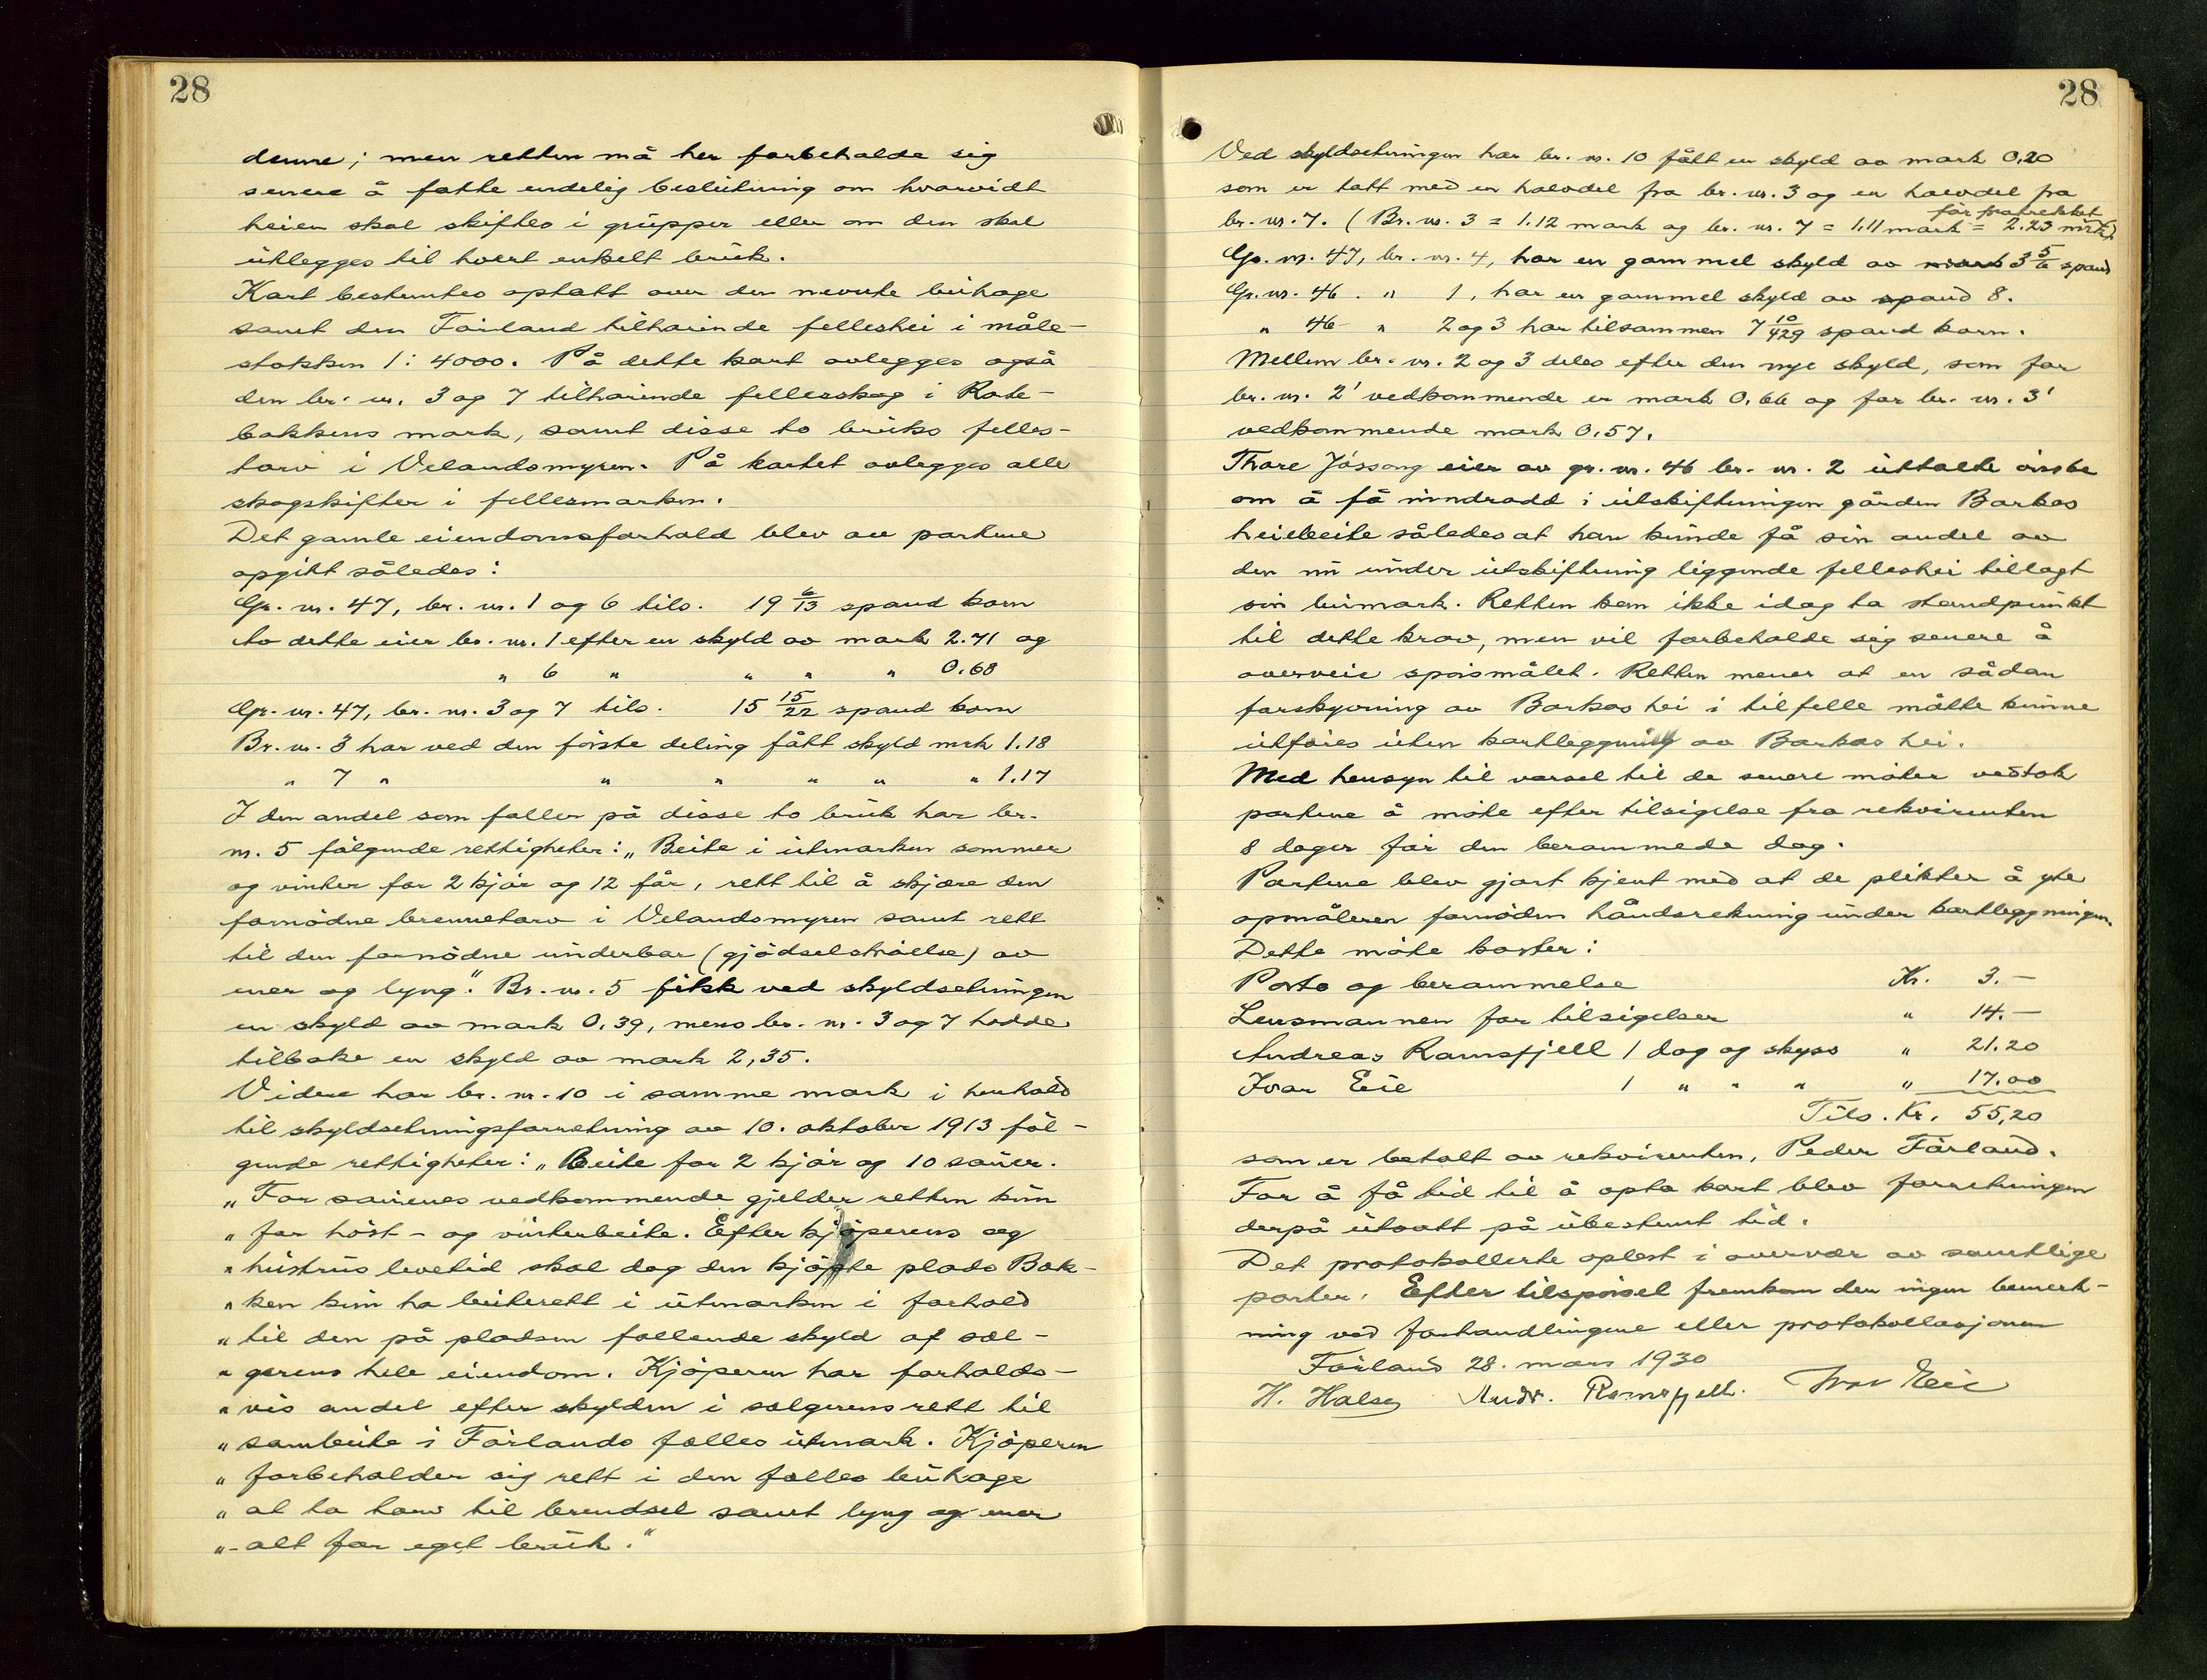 28
denne; men retten må her forbeholde sig
senere å fatte endelig beslutning om hvorvidt
heien skal skiftes i grupper eller om den skal
utlegges til hvert enkelt bruk.
Kart bestemtes optatt over den nevnte buhage
samt den Førland tilhørende felleshei i måle-
stokken 1:4000. På dette kart avlegges også
den br. nr. 3 og 7 tilhørende fellesskog i Rote-
bakkens mark, samt disse to bruks felles-
torv i Velandsmyren. På kartet avlegges alle
skogskifter i fellesmarken.
Det gamle eiendomsforhold blev av partene
opgitt således:
Gr. nr. 47, br. nr. 1 og 6 tils. 19 6/13 spand korn
Av dette eier br. nr. 1 efter en skyld av mark 2.71 og
" 6 " " " " 0.68
Gr. nr. 47, br. nr. 3 og 7 tils. 15 15/22 spand korn
Br. nr. 3 har ved den første deling fått skyld mrk 1.18
" 7 " " " " " " 1.17
I den andel som faller på disse to bruk har br.
nr. 5 følgende rettigheter: „Beite i utmarken sommer
og vinter for 2 kjør og 12 får, rett til å skjære den
fornødne brennetorv i Velandsmyren samt rett
til den fornødne underbar (gjødselstrøelse) av
ener og lyng." Br. nr. 5 fikk ved skyldsetningen
en skyld av mark 0,39, mens br. nr. 3 og 7 hadde
tilbake en skyld av mark 2,35.
Videre har br. nr. 10 i samme mark i henhold
til skyldsetningsforretning av 10. oktober 1913 føl-
gende rettigheter: „Beite for 2 kjør og 10 sauer.
„ For sauenes vedkommende gjelder retten kun
„ for høst- og vinterbeite. Efter kjøperens og
„ hustrus levetid skal dog den kjøpte plads Bak-
„ ken kun ha beiterett i utmarken i forhold
„ til den på pladsen fallende skyld af sæl-
„ gerens hele eiendom. Kjøperen har forholds-
„ vis andel efter skylden i sælgerens rett til
„ sambeite i Førlands fælles utmark. Kjøperen
„ forbeholder sig rett i den fælles buhage
„ at ta torv til brendsel samt lyng og ener
„ - alt for eget bruk."
28
Ved skyldsetningen har br. nr. 10 fått en skyld av mark 0,20
som er tatt med en halvdel fra br. nr. 3 og en halvdel fra
før fratrekket
br. nr. 7. (Br. nr. 3 = 1.12 mark og br. nr. 7 = 1.11 mark = 2.23 mrk)
Gr. nr. 47, br. nr. 4, har en gammel skyld av mark 3 5/6 spand
Gr. nr. 46 . " 1, har en gammel skyld av spand 8.
" 46 - " 2 og 3 har tilsammen 7 10/429 spand korn.
Mellem br. nr. 2 og 3 deles efter den nye skyld, som for
br. nr. 2' vedkommende er mark 0,66 og for br. nr. 3'
vedkommende mark 0.57.
Thore Jøssang eier av gr. nr. 46 br. nr. 2 uttalte ønske
om å få inndradd i utskiftningen gården Barkas
heiebeite således at han kunde få sin andel av
den nu under utskiftning liggende felleshei tillagt
sin bumark. Retten kan ikke idag ta standpunkt
til dette krav, men vil forbeholde sig senere å
overveie spørsmålet. Retten mener at en sådan
forskyvning av Barkas hei i tilfelle måtte kunne
utføres uten kartleggning av Barkas hei.
Med hensyn til varsel til de senere møter vedtok
partene å møte efter tilsigelse fra rekvirenten
8 dager før den berammede dag.
Partene blev gjort kjent med at de plikter å yte
opmåleren fornøden håndsrekning under kartleggningen.
Dette møte koster:
Porto og berammelse Kr. 3.-
Lensmannen for tilsigelser " 14.-
Andreas Ramsfjell 1 dag og skyss " 21.20
Ivar Eie 1 " " " " 17.00
Tils. Kr. 55,20
som er betalt av rekvirenten, Peder Førland.
For å få tid til å opta kart blev forretningen
derpå utsatt på ubestemt tid.
Det protokollerte oplest i overvær av samtlige
parter. Efter tilspørsel fremkom der ingen bemerk-
ning ved forhandlingene eller protokollasjonen
Førland 28. mars 1930
H. Halse Andr. Ramsfjell. Ivar Eie